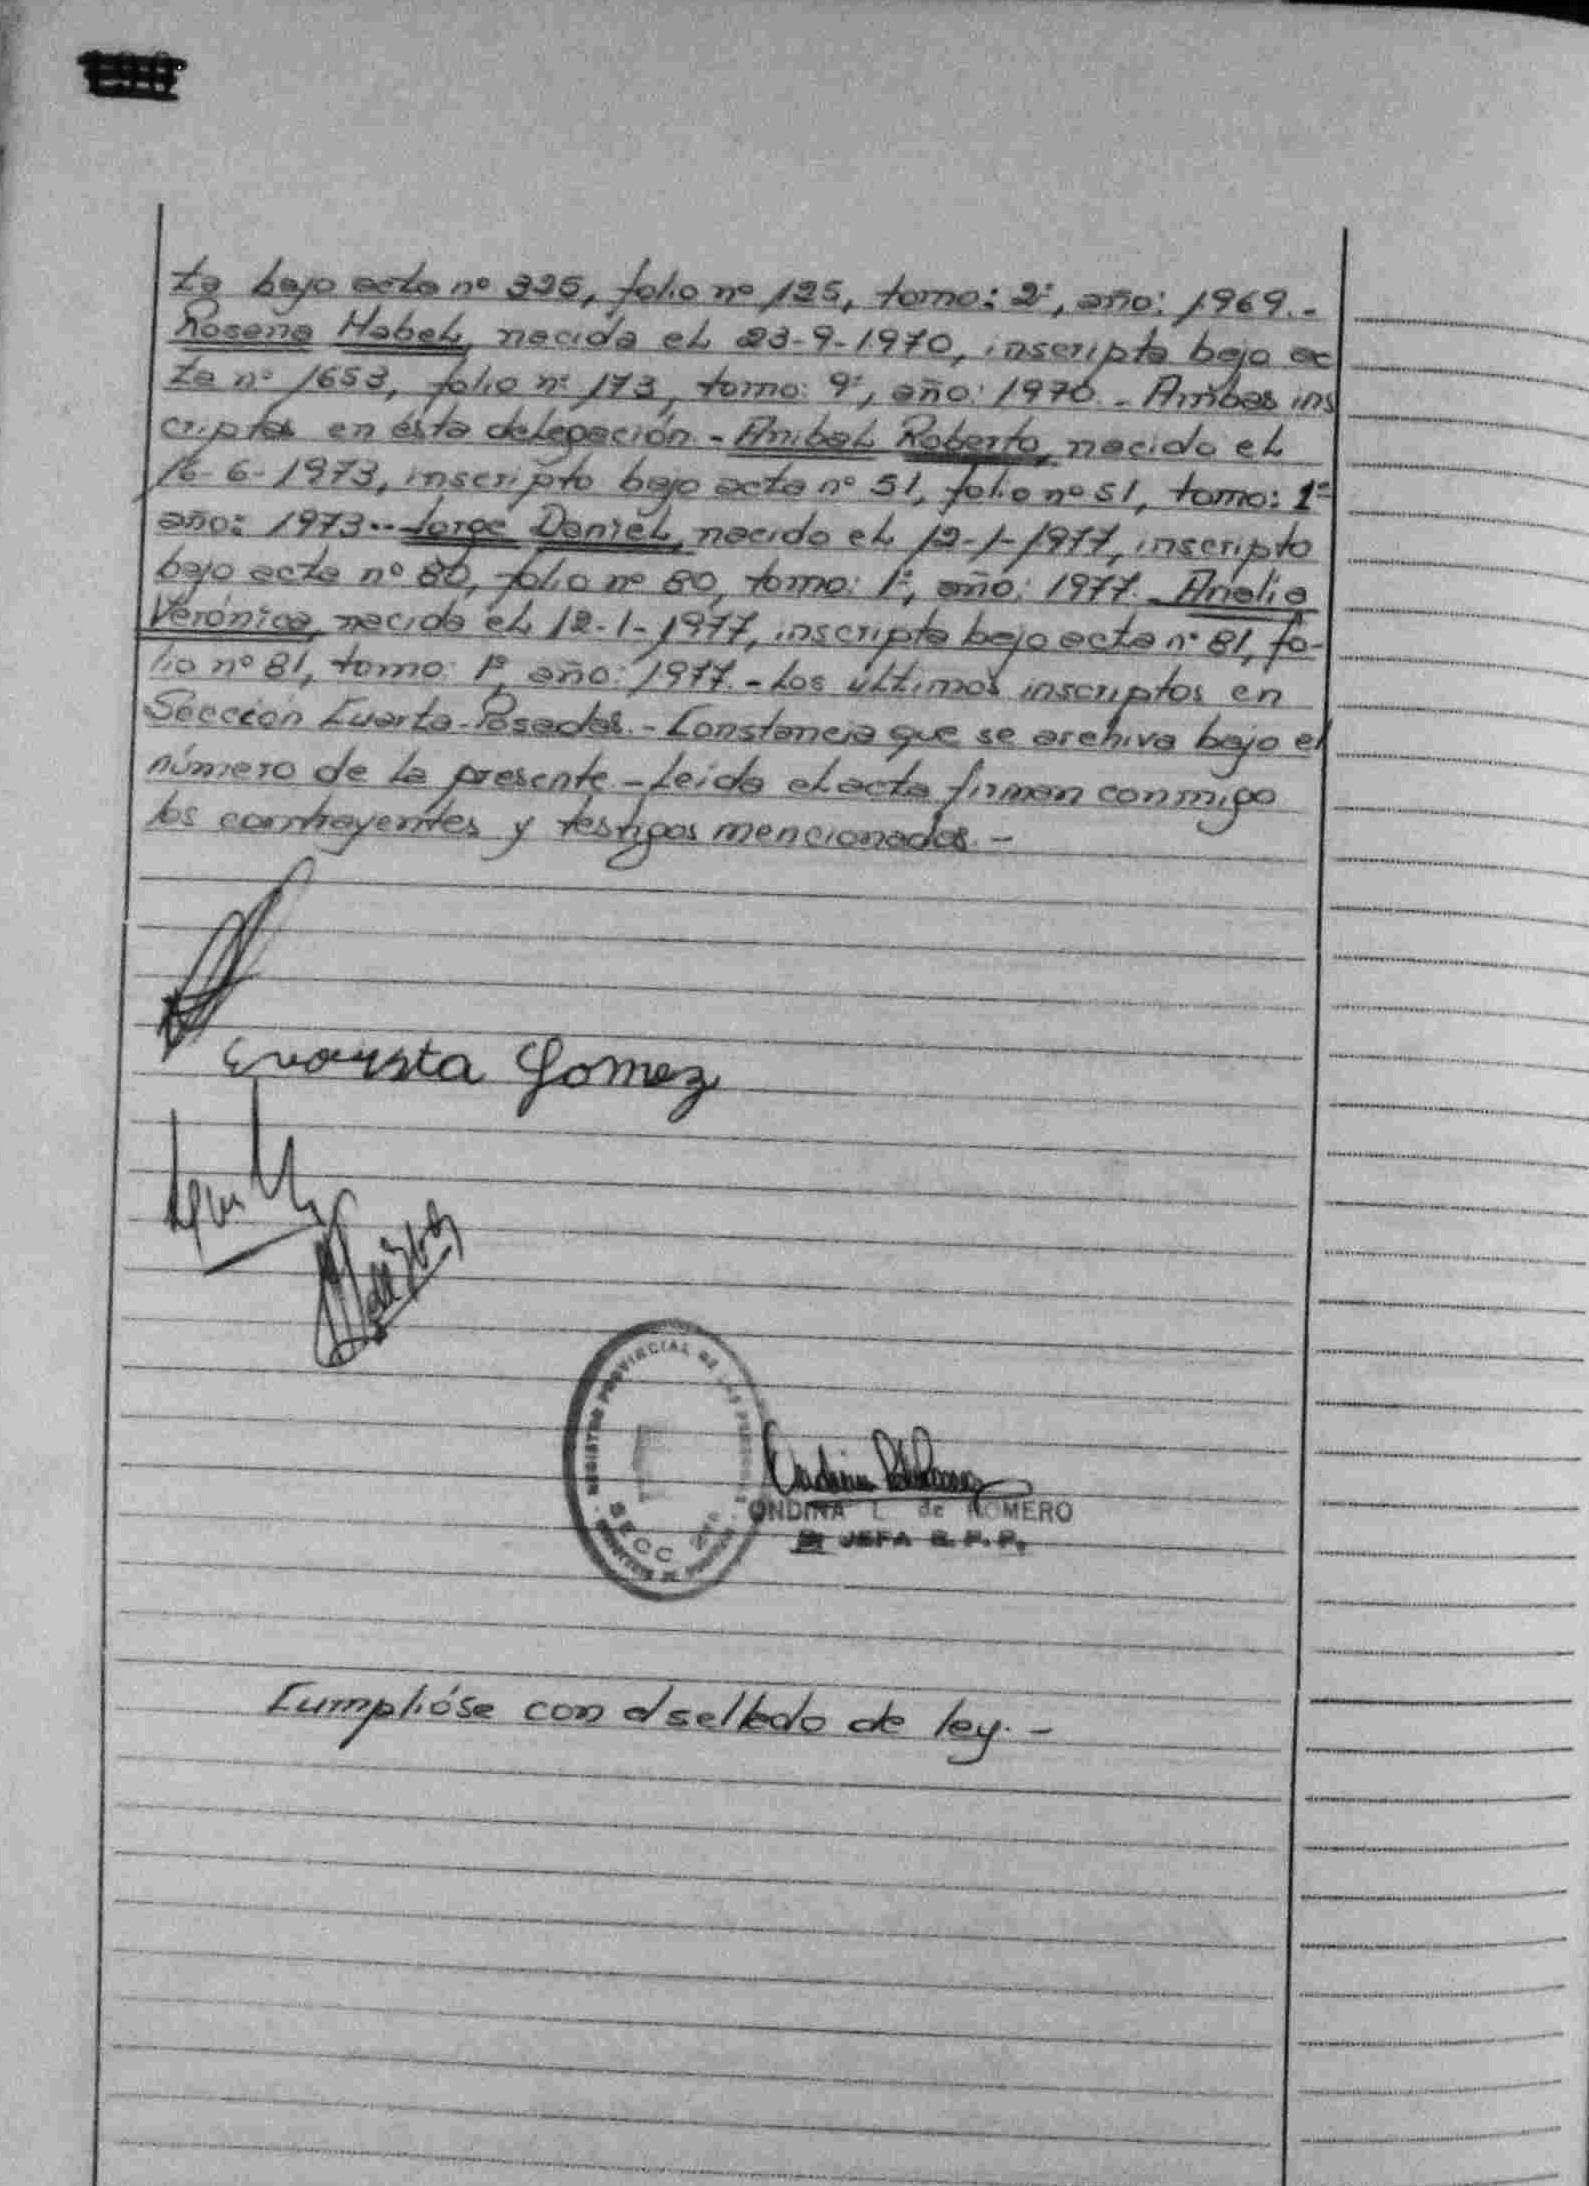 ta bajo acta nº 325, folio nº 125, tomo: 2º, año: 1969.-
Rosana Mabel, nacida el 23-9-1970, inscripta bajo ac
ta nº 1653, folio nº 173, tomo: 9º, año: 1970.- Ambas ins
criptas en ésta delegación.- Anibal Roberto, nacido el
16-6-1973, inscripto bajo acta nº 51, folio nº 51, tomo: 1º
año: 1973.- Jorge Daniel, nacido el 12-1-1977, inscripto
bajo acta nº 80, folio nº 80, tomo: 1º, año: 1977.- Analia
Verónica, nacida el 12-1-1977, inscripta bajo acta nº 81, fo-
lio nº 81, tomo: 1º, año: 1977.- Los últimos inscriptos en
Sección Cuarta-Posadas.- Constancia que se archiva bajo el
número de la presente.- Leida el acta firman conmigo
los contrayentes y testigos mencionados.-
Evarista Gomez
REGISTRO PROVINCIAL DE LAS PERSONAS
SECC
ONDINA L. de ROMERO
JEFA R. P. P.
Cumplióse con el sellado de ley.-